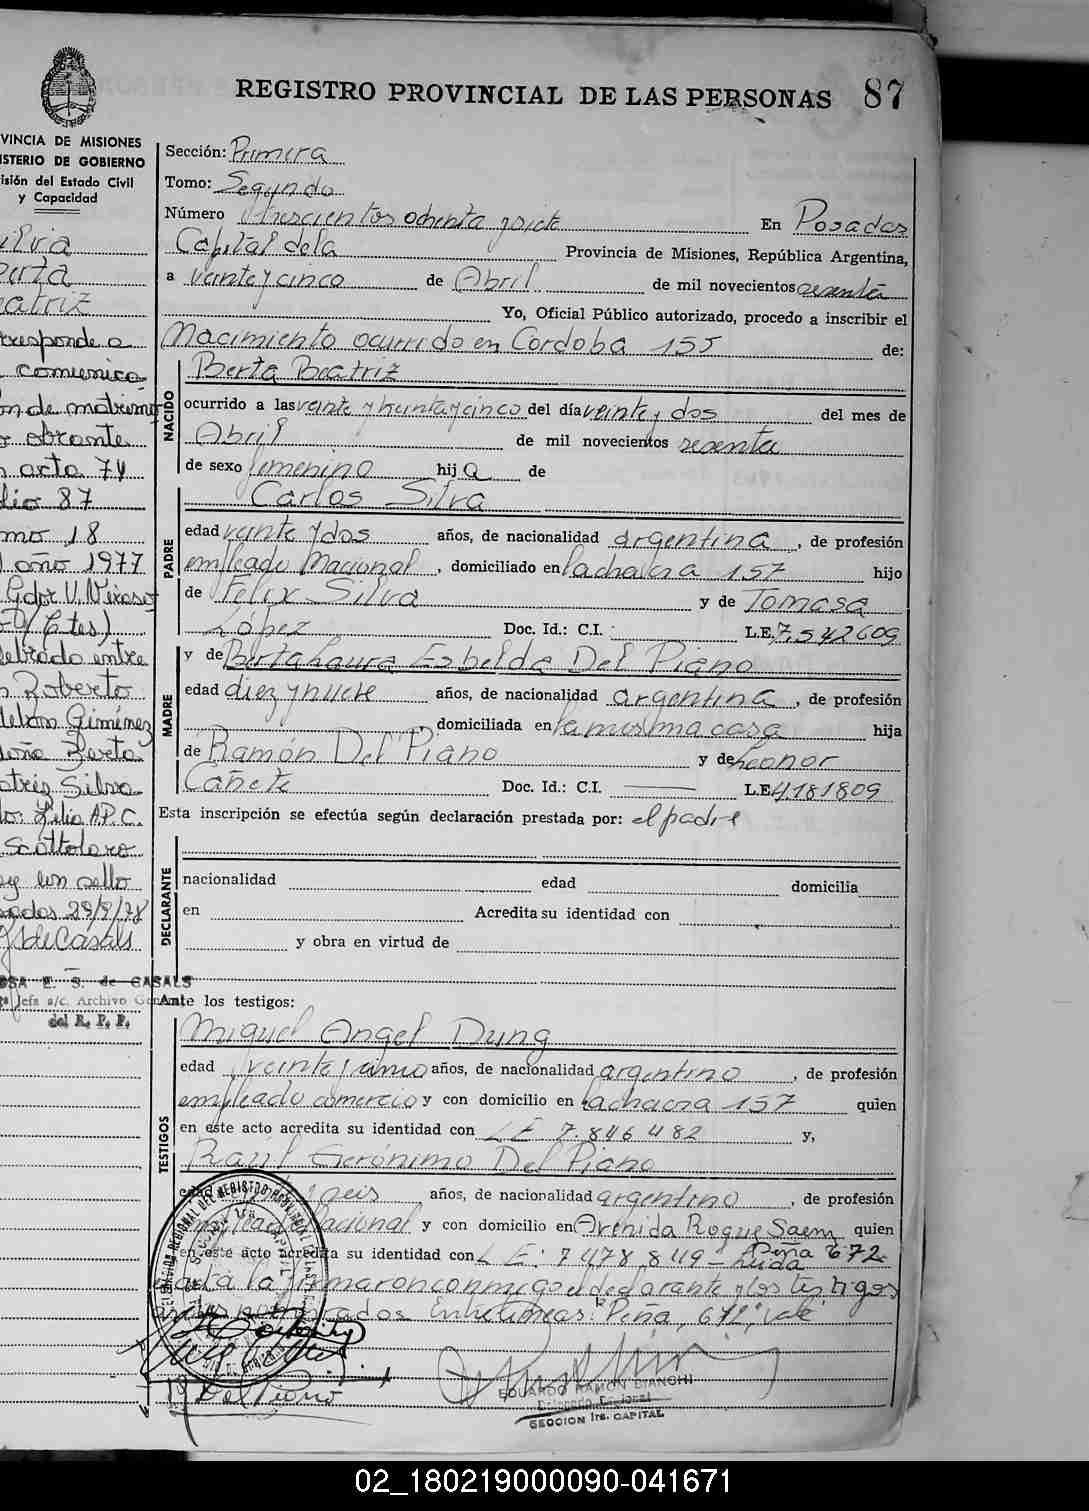 REGISTRO PROVINCIAL DE LAS PERSONAS 87
VINCIA DE MISIONES
ISTERIO DE GOBIERNO
isión del Estado Civil
y Capacidad
ilvia
erta
eatriz
rresponde a
comunica
on de matrimo
obrante
acta 74
lio 87
mo 18
año 1977
Gdor V. Viraso
(Ctes)
lebrado entre
Roberto
Giménez
doña Berta
atris Silva
do: Lilia A.P.C.
Scottolaro
ay un sello
sadas 29/9/78
de Casals
OSA E. S. de CASALS
Jefa a/c. Archivo General
del R. P. P.
Sección: Primera
Tomo: Segundo
Número trescientos ochenta y siete En Posadas
Capital de la Provincia de Misiones, República Argentina,
a veinte y cinco de Abril de mil novecientos sesenta
Yo, Oficial Público autorizado, procedo a inscribir el
Nacimiento ocurrido en Cordoba 155 de:
NACIDO
Berta Beatriz
ocurrido a las veinte y treinta y cinco del día veinte y dos del mes de
Abril de mil novecientos sesenta
de sexo femenino hija de
PADRE
Carlos Silva
edad veinte y dos años, de nacionalidad argentina, de profesión
empleado Nacional, domiciliado en la chacra 157 hijo
de Felix Silva y de Tomasa
López Doc. Id.: C.I. L.E. 7.542609
MADRE
y de Berta Laura Esbelda Del Piano
edad diez y nueve años, de nacionalidad argentina, de profesión
domiciliada en la misma casa hija
de Ramón Del Piano y de Leonor
Cañete Doc. Id.: C.I. L.E. 4.181809
Esta inscripción se efectúa según declaración prestada por: el padre
DECLARANTE
nacionalidad edad domicilia
en Acredita su identidad con
y obra en virtud de
Ante los testigos:
TESTIGOS
Miguel Angel Dung
edad veinte y años, de nacionalidad argentino, de profesión
empleado comercio y con domicilio en la chacra 157 quien
en este acto acredita su identidad con L E 7.846482 y,
Raúl Gerónimo Del Piano
edad y seis años, de nacionalidad argentino, de profesión
empleado Nacional y con domicilio en Avenida Roque Saenz quien
Peña 672
en este acto acredita su identidad con L E: 7478849 - Leida
el acta la firmaron conmigo el declarante y los testigos
nombrados. Entre líneas: Peña, 672; vale
Del Piano
EDUARDO RAMON BIANCHI
Delegado Regional
SECCION 1ra. CAPITAL
02_180219000090-041671